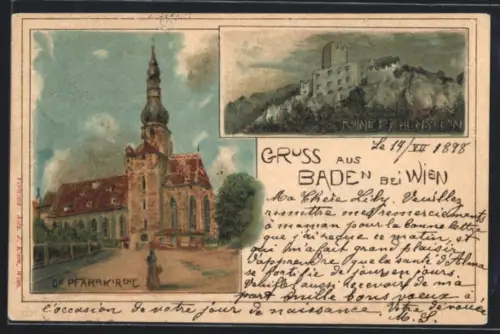 RUINE RAUHENSTEIN
Le 19/VII 1898
GRUSS AUS
BADEN BEI WIEN
Ma Chère Lily. Veuillez
remettre mes remerciements
à maman pour la bonne lettre
que j'ai reçue ce matin, et
qui m'a fait grand plaisir
d'apprendre que la santé d'Alma
se fortifie de jour en jours.
Veuillez aussi recevoir de ma
part mille bons vœux à
l'occasion de votre jour de naissance. Votre dévouée
M. S.
DIE PFARRKIRCHE